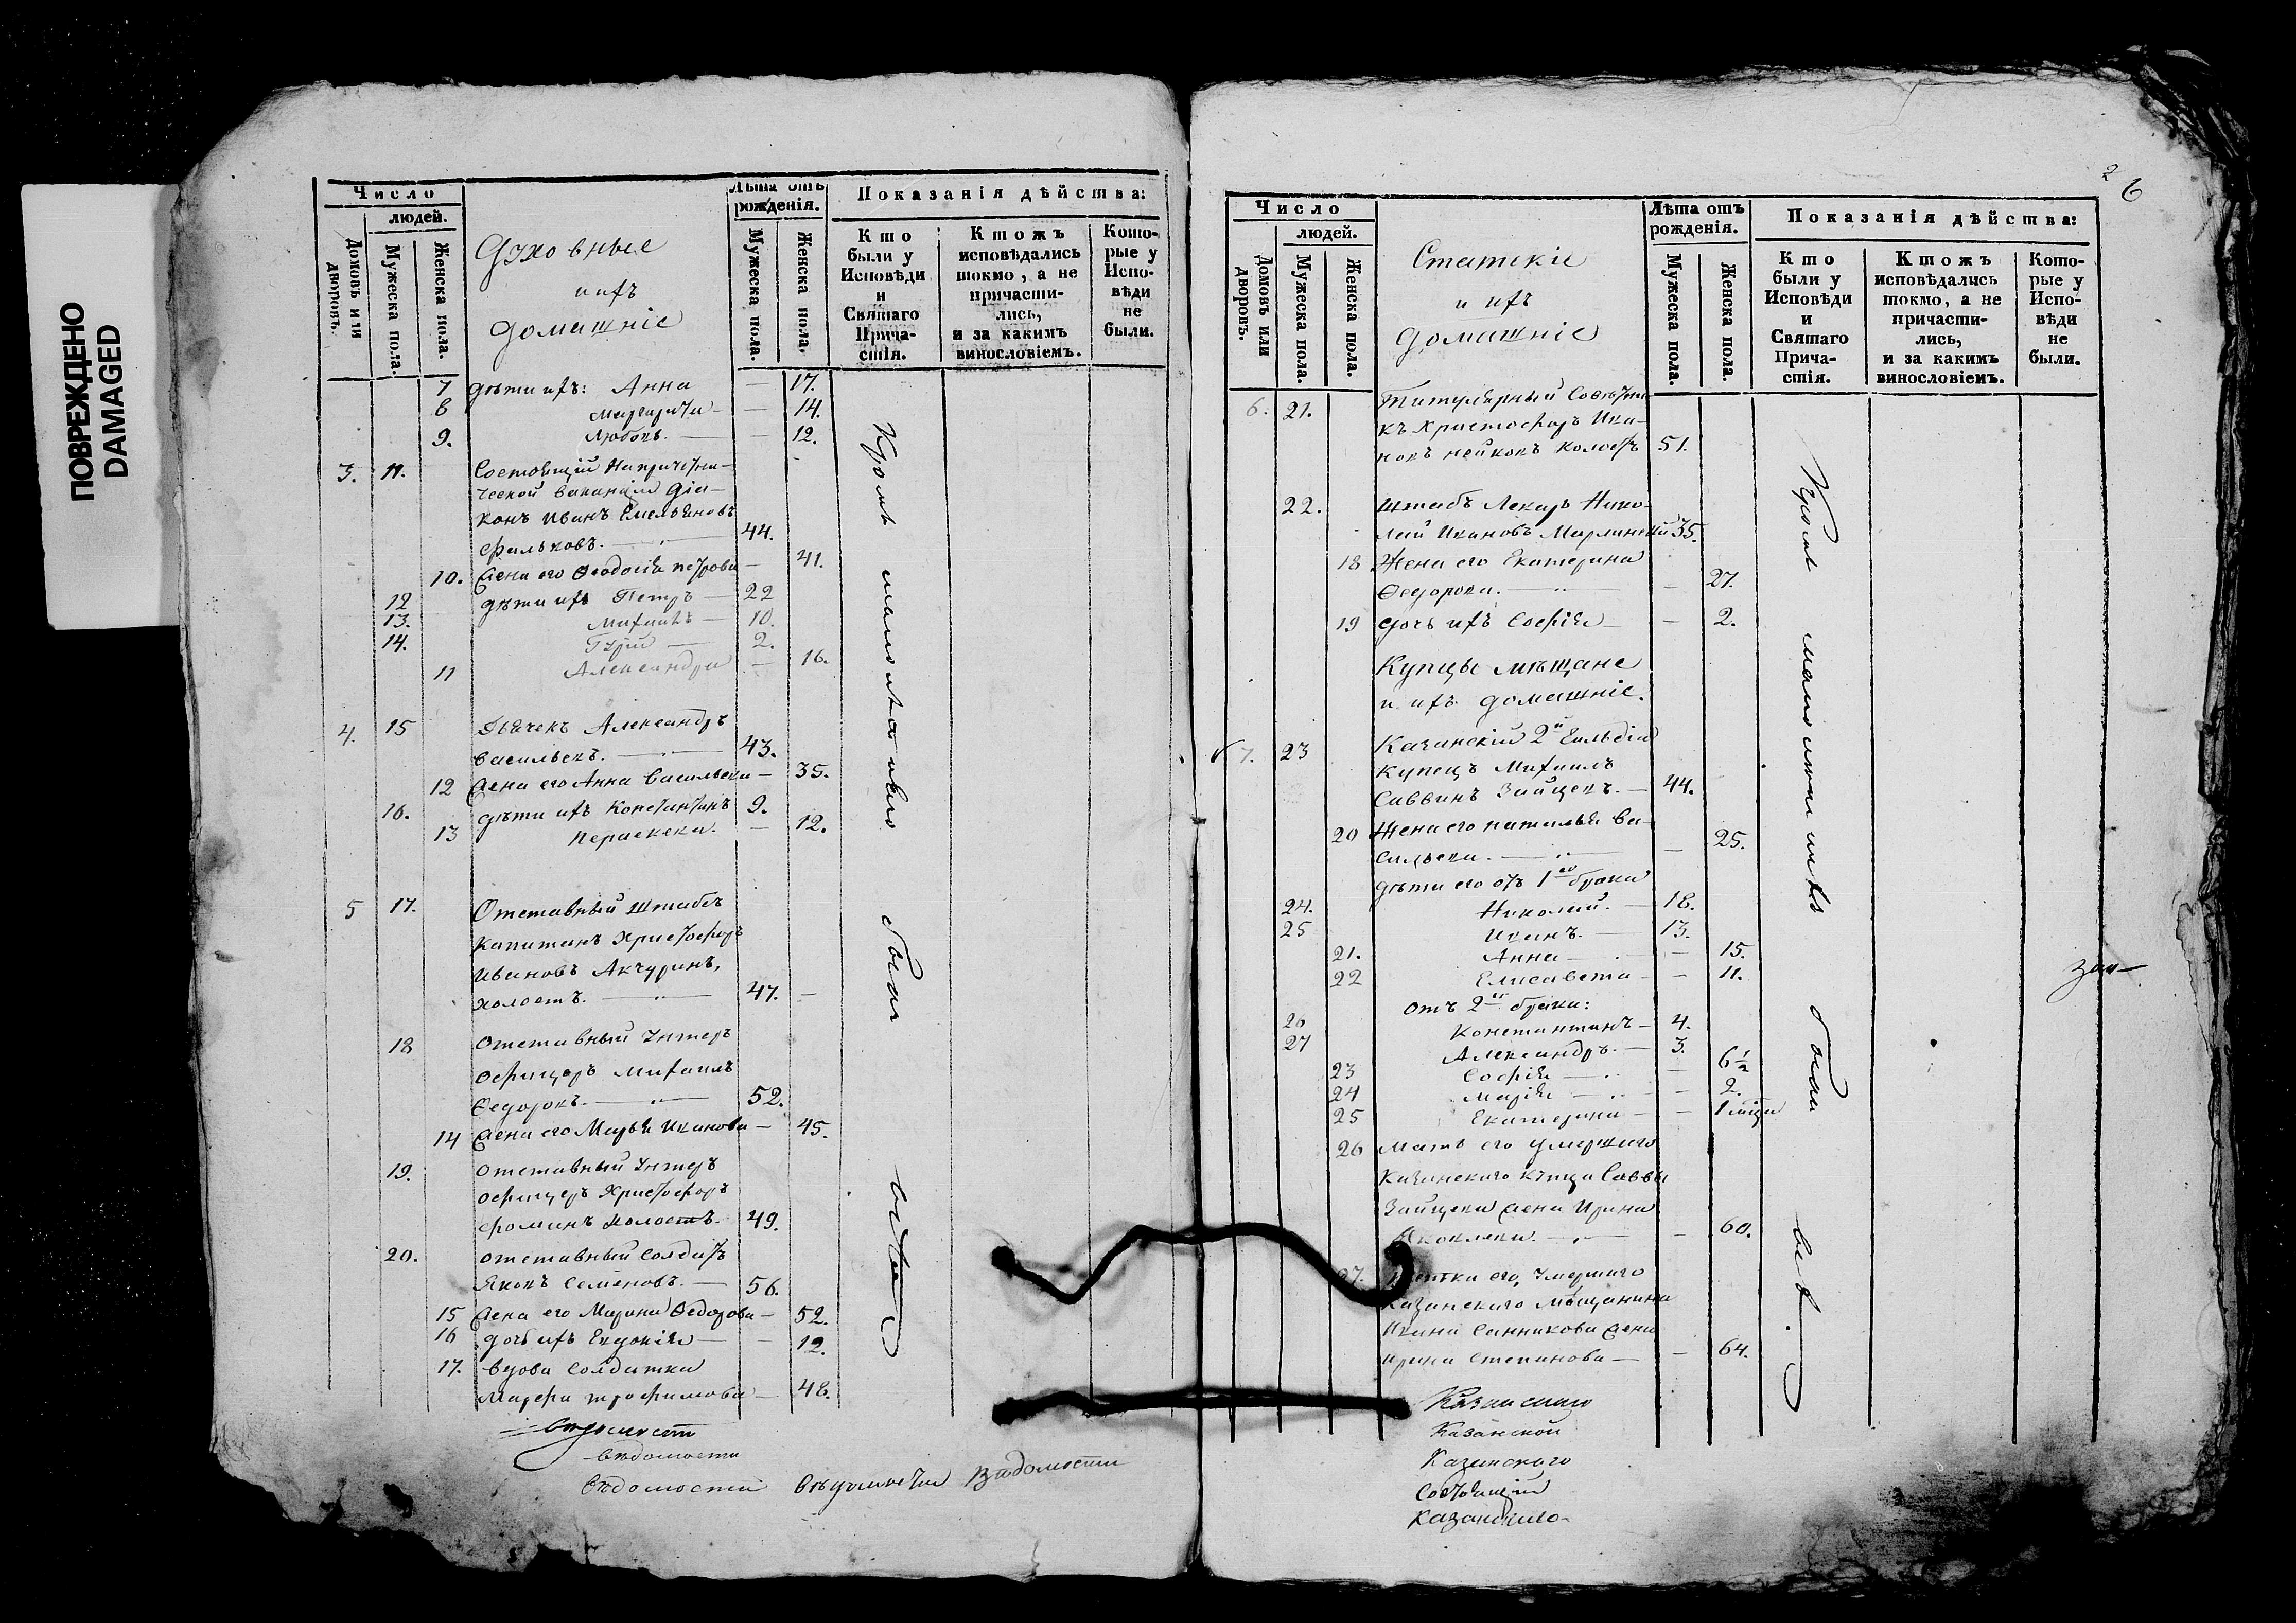 ПОВРЕЖДЕНО
DAMAGED
Число
людей.
Домовъ или дворовъ.
Мужеска пола.
Женска пола.
Духовные
и ихъ
домашніе
Лѣта отъ рожденія.
Мужеска пола.
Женска пола.
Показанія дѣйства:
Кто были у Исповѣди и Святаго Причастія.
Ктожъ исповѣдались токмо, а не причастились, и за какимъ винословіемъ.
Которые у Исповѣди не были.
7 дѣти ихъ: Анна — 17.
8 Маргарита — 14.
9. Любовь — 12.
3. 11. Состоящій на причетни-
ческой вакансіи діа-
конъ Иванъ Емельяновъ
Фальковъ. 44.
10. жена его Ѳеодосія Петрова — 41.
12 дѣти ихъ Петръ — 22
13. Михаилъ — 10.
14. Гурій — 2.
11 Александра — 16.
4. 15 Дьячекъ Александръ
Васильевъ. 43.
12 жена его Анна Васильева — 35.
16. дѣти ихъ Константинъ 9.
13 Параскева. — 12.
5 17. Отставный Штабсъ
Капитанъ Христофоръ
Ивановъ Акчуринъ,
холостъ. 47. —
18 Отставный Унтеръ
офицеръ Михаилъ
Ѳедоровъ. 52.
14 жена его Марья Иванова — 45.
19. отставный Унтеръ
офицеръ Христофоръ
Фоминъ холостъ. 49.
20. отставный Солдатъ
Яковъ Семеновъ. — 56.
15 жена его Марина Ѳедорова — 52.
16 дочь ихъ Евдокія — 12.
17. вдова Солдатка
Марфа Трофимова — 48.
Кромѣ малолѣтнихъ были всѣ
вѣдомости
вѣдомости вѣдомости вѣдомости
2 6
Число
людей.
Домовъ или дворовъ.
Мужеска пола.
Женска пола.
Статскіе
и ихъ
домашніе
Лѣта отъ рожденія.
Мужеска пола.
Женска пола.
Показанія дѣйства:
Кто были у Исповѣди и Святаго Причастія.
Ктожъ исповѣдались токмо, а не причастились, и за какимъ винословіемъ.
Которые у Исповѣди не были.
6. 21. Титулярный Совѣтни-
къ Христофоръ Ива-
новъ холостъ 51.
22. Штабъ Лекарь Нико-
лай Ивановъ 35.
18 Жена его Екатерина
Ѳедорова. — 27.
19 дочь ихъ Софія — 2.
Купцы мѣщане
и ихъ домашніе.
7. 23 Казанскій 2й Гильдіи
Купецъ Михаилъ
Саввинъ Зайцевъ. — 44.
20 Жена его Наталья Ва-
сильева. — 25.
дѣти его отъ 1го брака
24. Николай. — 18.
25 Иванъ. — 13.
21. Анна — 15.
22 Елисавета — 11.
отъ 2го брака:
26 Константинъ — 4.
27 Александръ. — 3.
23 Софія — 6½
24 Марія — 2.
25 Екатерина — 1 мѣца
26 Мать его умершаго
Казанскаго купца Саввы
Зайцева жена Ирина
Яковлева. — 60.
27. тетка его, умершаго
Казанскаго мѣщанина
Ивана Санникова жена
Ирина Степанова — 64.
Кромѣ малолѣтнихъ были всѣ.
Казанскаго
Казанской
Казанскаго
Состоящій
Казанскаго